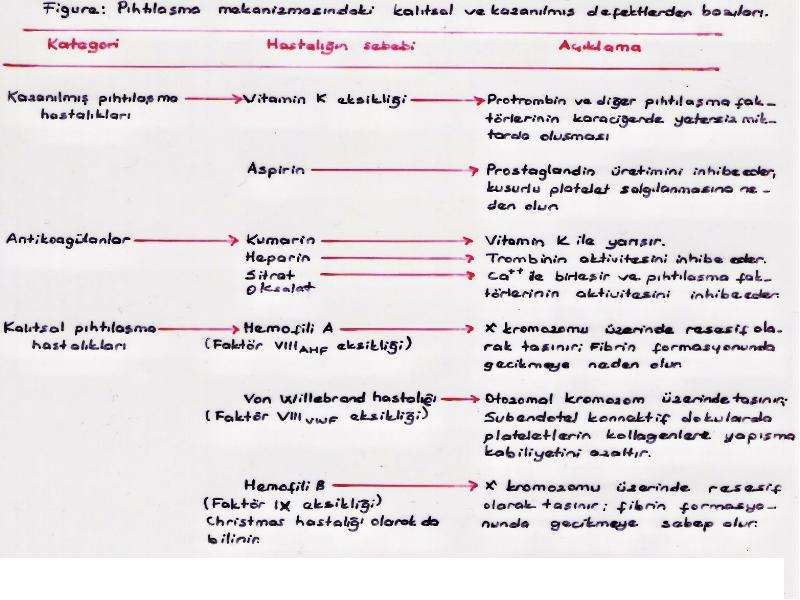 Figure: Pıhtılaşma mekanizmasındaki kalıtsal ve kazanılmış defektlerden bazıları.
Kategori Hastalığın sebebi Açıklama
Kazanılmış pıhtılaşma
hastalıkları
Vitamin K eksikliği
Protrombin ve diğer pıhtılaşma fak-
törlerinin karaciğerde yetersiz mik-
tarda oluşması
Aspirin
Prostaglandin üretimini inhibe eder,
kusurlu platelet salgılanmasına ne-
den olur.
Antikoagülanlar
Kumarin
Vitamin K ile yarışır.
Heparin
Trombinin aktivitesini inhibe eder.
Sitrat
Oksalat
Ca++ ile birleşir ve pıhtılaşma fak-
törlerinin aktivitesini inhibe eder.
Kalıtsal pıhtılaşma
hastalıkları
Hemofili A
(Faktör VIII AHF eksikliği)
X kromozomu üzerinde resesif ola-
rak taşınır; Fibrin formasyonunda
gecikmeye neden olur.
Von Willebrand hastalığı
(Faktör VIII VWF eksikliği)
Otozomal kromozom üzerinde taşınır;
Subendotel konnektif dokularda
plateletlerin kollagenlere yapışma
kabiliyetini azaltır.
Hemofili B
(Faktör IX eksikliği)
Christmas hastalığı olarak da
bilinir.
X kromozomu üzerinde resesif
olarak taşınır; fibrin formasyo-
nunda gecikmeye sebep olur.